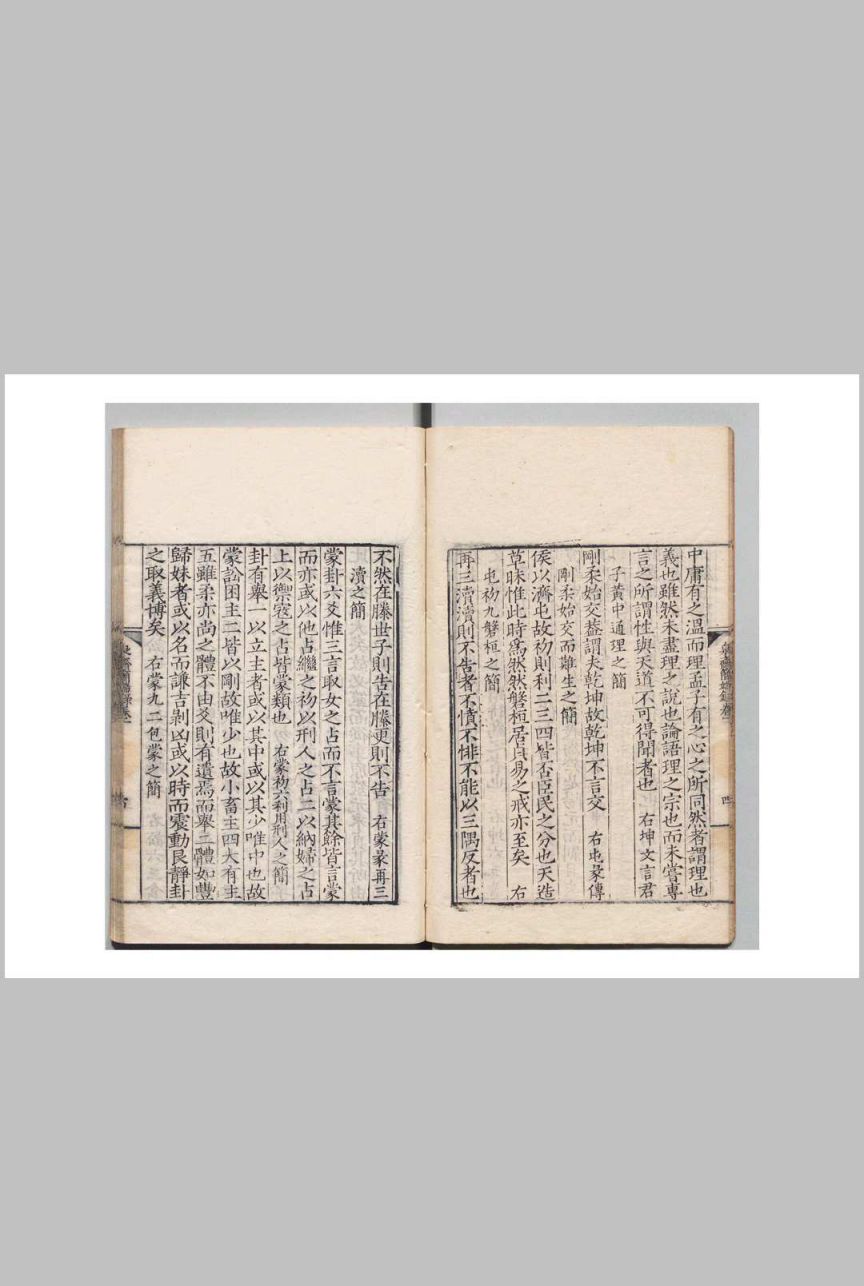 中庸有之溫而理孟子有之心之所同然者謂理也
義也雖然未盡理之說也論語理之宗也而未嘗專
言之所謂性與天道不可得聞者也 右坤文言君
子黃中通理之簡
剛柔始交蓋謂夫乾坤故乾坤不言交 右屯彖傳
剛柔始交而難生之簡
侯以濟屯故初則利二三四皆否臣民之分也天造
草昧惟此時爲然然磐桓居貞易之戒亦至矣 右
屯初九磐桓之簡
再三瀆瀆則不告者不憤不悱不能以三隅反者也
四
不然在滕世子則告在滕更則不告 右蒙彖再三
瀆之簡
蒙卦六爻惟三言取女之占而不言蒙其餘皆言蒙
而亦或以他占繼之初以刑人之占二以納婦之占
上以禦寇之占皆蒙類也 右蒙初六利用刑人之簡
卦有舉一以立主者或以其中或以其少唯中也故
蒙訟困主二皆以剛故唯少也故小畜主四大有主
五雖柔亦尚之體不由爻則有遺焉而舉二體如豐
歸妹者或以名而謙吉剝凶或以時而震動艮靜卦
之取義博矣 右蒙九二包蒙之簡